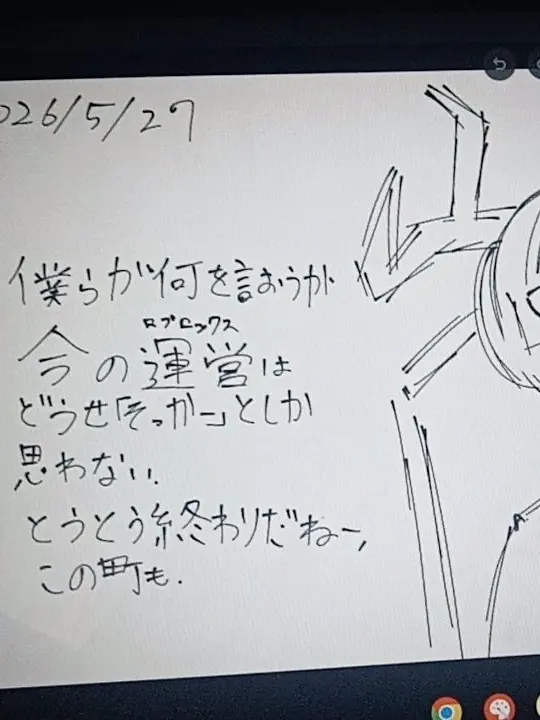 026/5/27
僕らが何を言おうが
ロブロックス
今の運営は
どうせ「そっかー」としか
思わない.
とうとう終わりだねー,
この町も.